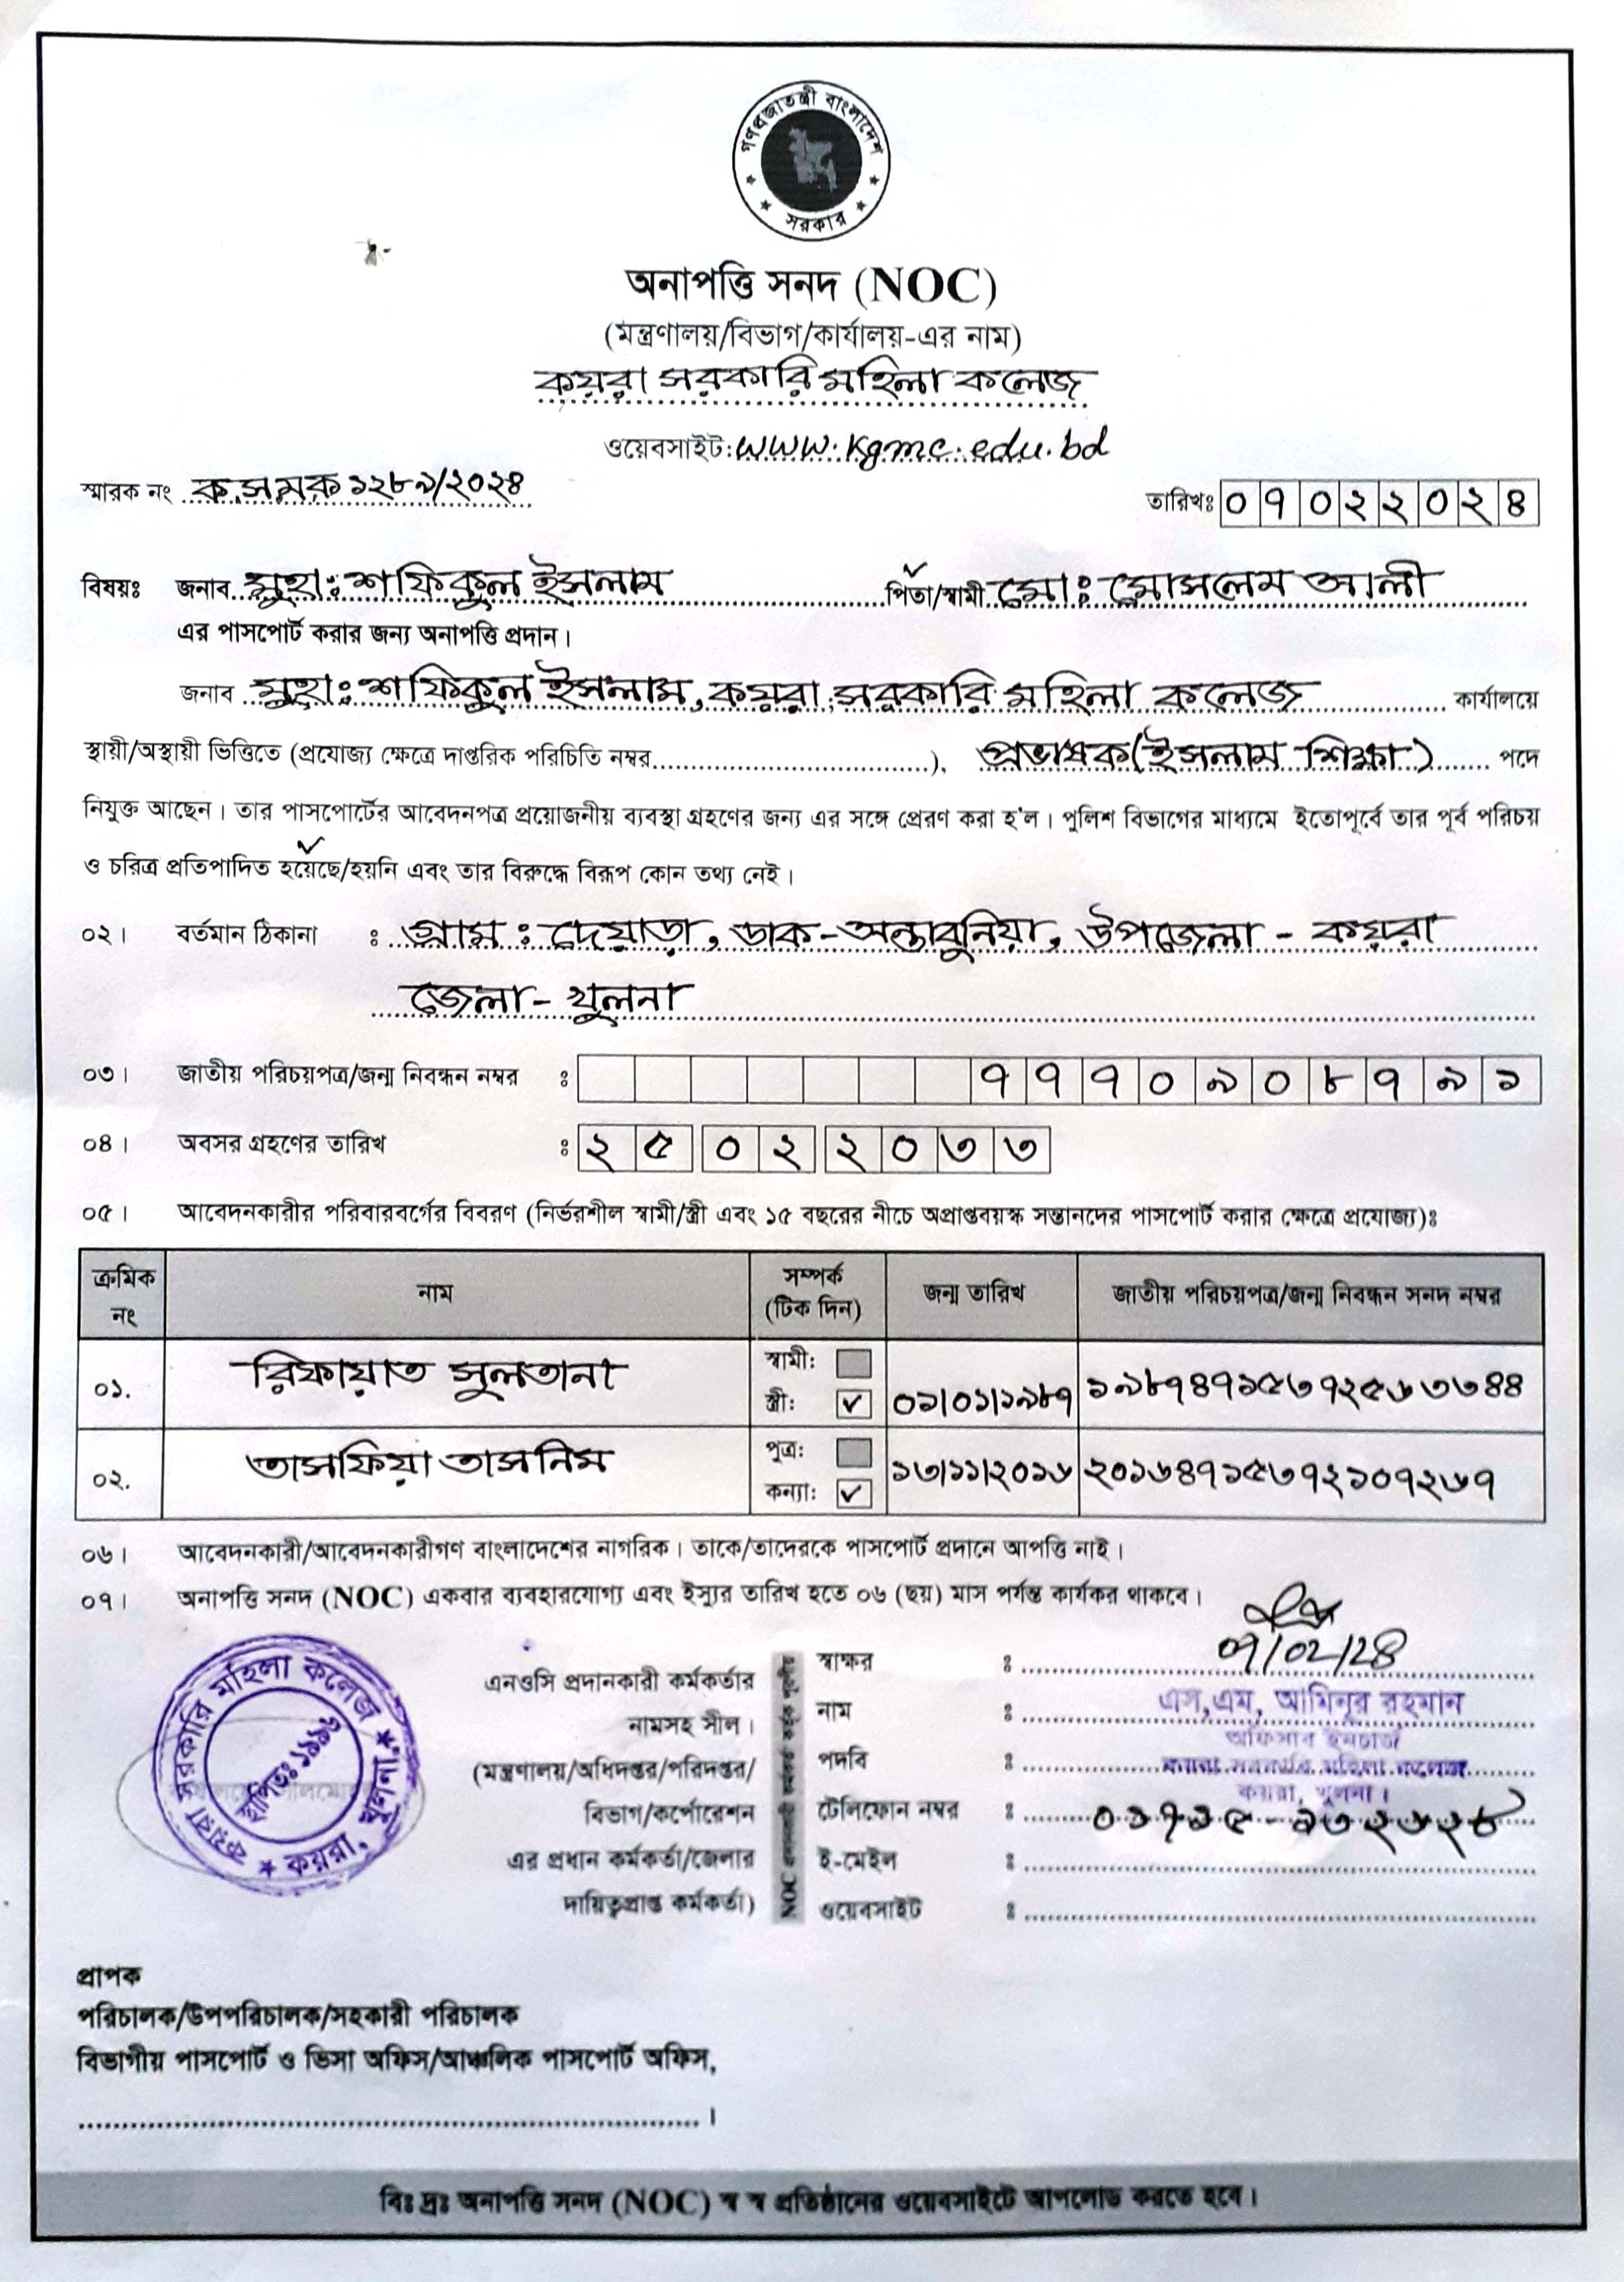 গণপ্রজাতন্ত্রী বাংলাদেশ
সরকার
অনাপত্তি সনদ (NOC)
(মন্ত্রণালয়/বিভাগ/কার্যালয়-এর নাম)
কয়রা সরকারি মহিলা কলেজ
ওয়েবসাইট: www.kgmc.edu.bd
স্মারক নং ক.স.ম.ক ১২৮৯/২০২৪ তারিখঃ ০৭০২২০২৪
বিষয়ঃ জনাব মুহাঃ শফিকুল ইসলাম পিতা/স্বামী মোঃ মোসলেম আলী
এর পাসপোর্ট করার জন্য অনাপত্তি প্রদান।
জনাব মুহাঃ শফিকুল ইসলাম, কয়রা সরকারি মহিলা কলেজ কার্যালয়ে
স্থায়ী/অস্থায়ী ভিত্তিতে (প্রযোজ্য ক্ষেত্রে দাপ্তরিক পরিচিতি নম্বর..............................), প্রভাষক (ইসলাম শিক্ষা) পদে
নিযুক্ত আছেন। তার পাসপোর্টের আবেদনপত্র প্রয়োজনীয় ব্যবস্থা গ্রহণের জন্য এর সঙ্গে প্রেরণ করা হ'ল। পুলিশ বিভাগের মাধ্যমে ইতোপূর্বে তার পূর্ব পরিচয়
ও চরিত্র প্রতিপাদিত হয়েছে/হয়নি এবং তার বিরুদ্ধে বিরূপ কোন তথ্য নেই।
০২। বর্তমান ঠিকানা : গ্রাম: দেয়াড়া, ডাক-অন্তাবুনিয়া, উপজেলা - কয়রা
জেলা- খুলনা
০৩। জাতীয় পরিচয়পত্র/জন্ম নিবন্ধন নম্বর ঃ ৭৭৭০৯০৮৭৯১
০৪। অবসর গ্রহণের তারিখ ঃ ২৫০২২০৩৩
০৫। আবেদনকারীর পরিবারবর্গের বিবরণ (নির্ভরশীল স্বামী/স্ত্রী এবং ১৫ বছরের নীচে অপ্রাপ্তবয়স্ক সন্তানদের পাসপোর্ট করার ক্ষেত্রে প্রযোজ্য)ঃ
ক্রমিক নং নাম সম্পর্ক (টিক দিন) জন্ম তারিখ জাতীয় পরিচয়পত্র/জন্ম নিবন্ধন সনদ নম্বর
০১. রিফায়াত সুলতানা স্বামী: স্ত্রী: ✓ ০১/০১/১৯৮৭ ১৯৮৭৪৭১৫৩৭২৫৬৩৩৪৪
০২. তাসফিয়া তাসনিম পুত্র: কন্যা: ✓ ১৩/১১/২০১৬ ২০১৬৪৭১৫৩৭২১০৭২৬৭
০৬। আবেদনকারী/আবেদনকারীগণ বাংলাদেশের নাগরিক। তাকে/তাদেরকে পাসপোর্ট প্রদানে আপত্তি নাই।
০৭। অনাপত্তি সনদ (NOC) একবার ব্যবহারযোগ্য এবং ইস্যুর তারিখ হতে ০৬ (ছয়) মাস পর্যন্ত কার্যকর থাকবে।
কয়রা সরকারি মহিলা কলেজ
স্থাপিতঃ ১৯৯৬
কয়রা, খুলনা
এনওসি প্রদানকারী কর্মকর্তার
নামসহ সীল।
(মন্ত্রণালয়/অধিদপ্তর/পরিদপ্তর/
বিভাগ/কর্পোরেশন
এর প্রধান কর্মকর্তা/জেলার
দায়িত্বপ্রাপ্ত কর্মকর্তা)
NOC
স্বাক্ষর ঃ ০৭/০২/২৪
নাম ঃ এস,এম, আমিনুর রহমান
অফিসার ইনচার্জ
পদবি ঃ কয়রা সরকারি মহিলা কলেজ
কয়রা, খুলনা।
টেলিফোন নম্বর ঃ ০১৭১৫-১৩২৬২৮
ই-মেইল ঃ
ওয়েবসাইট ঃ
প্রাপক
পরিচালক/উপপরিচালক/সহকারী পরিচালক
বিভাগীয় পাসপোর্ট ও ভিসা অফিস/আঞ্চলিক পাসপোর্ট অফিস,
।
বিঃ দ্রঃ অনাপত্তি সনদ (NOC) স্ব স্ব প্রতিষ্ঠানের ওয়েবসাইটে আপলোড করতে হবে।